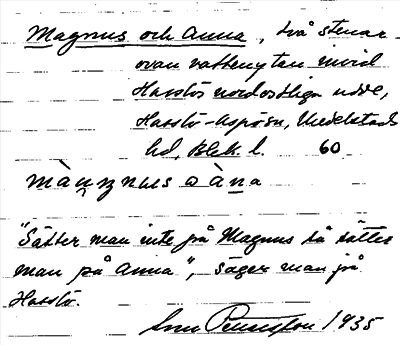 Magnus och Anna, två stenar
ovan vattenytan invid
Hasslös nordostliga udde,
Hasslö-Aspösn, Medelstads
hd, Blek. l. 60
màŋnus o àna
"Sätter man inte på Magnus så sätter
man på Anna", säger man på
Hasslö.
1935